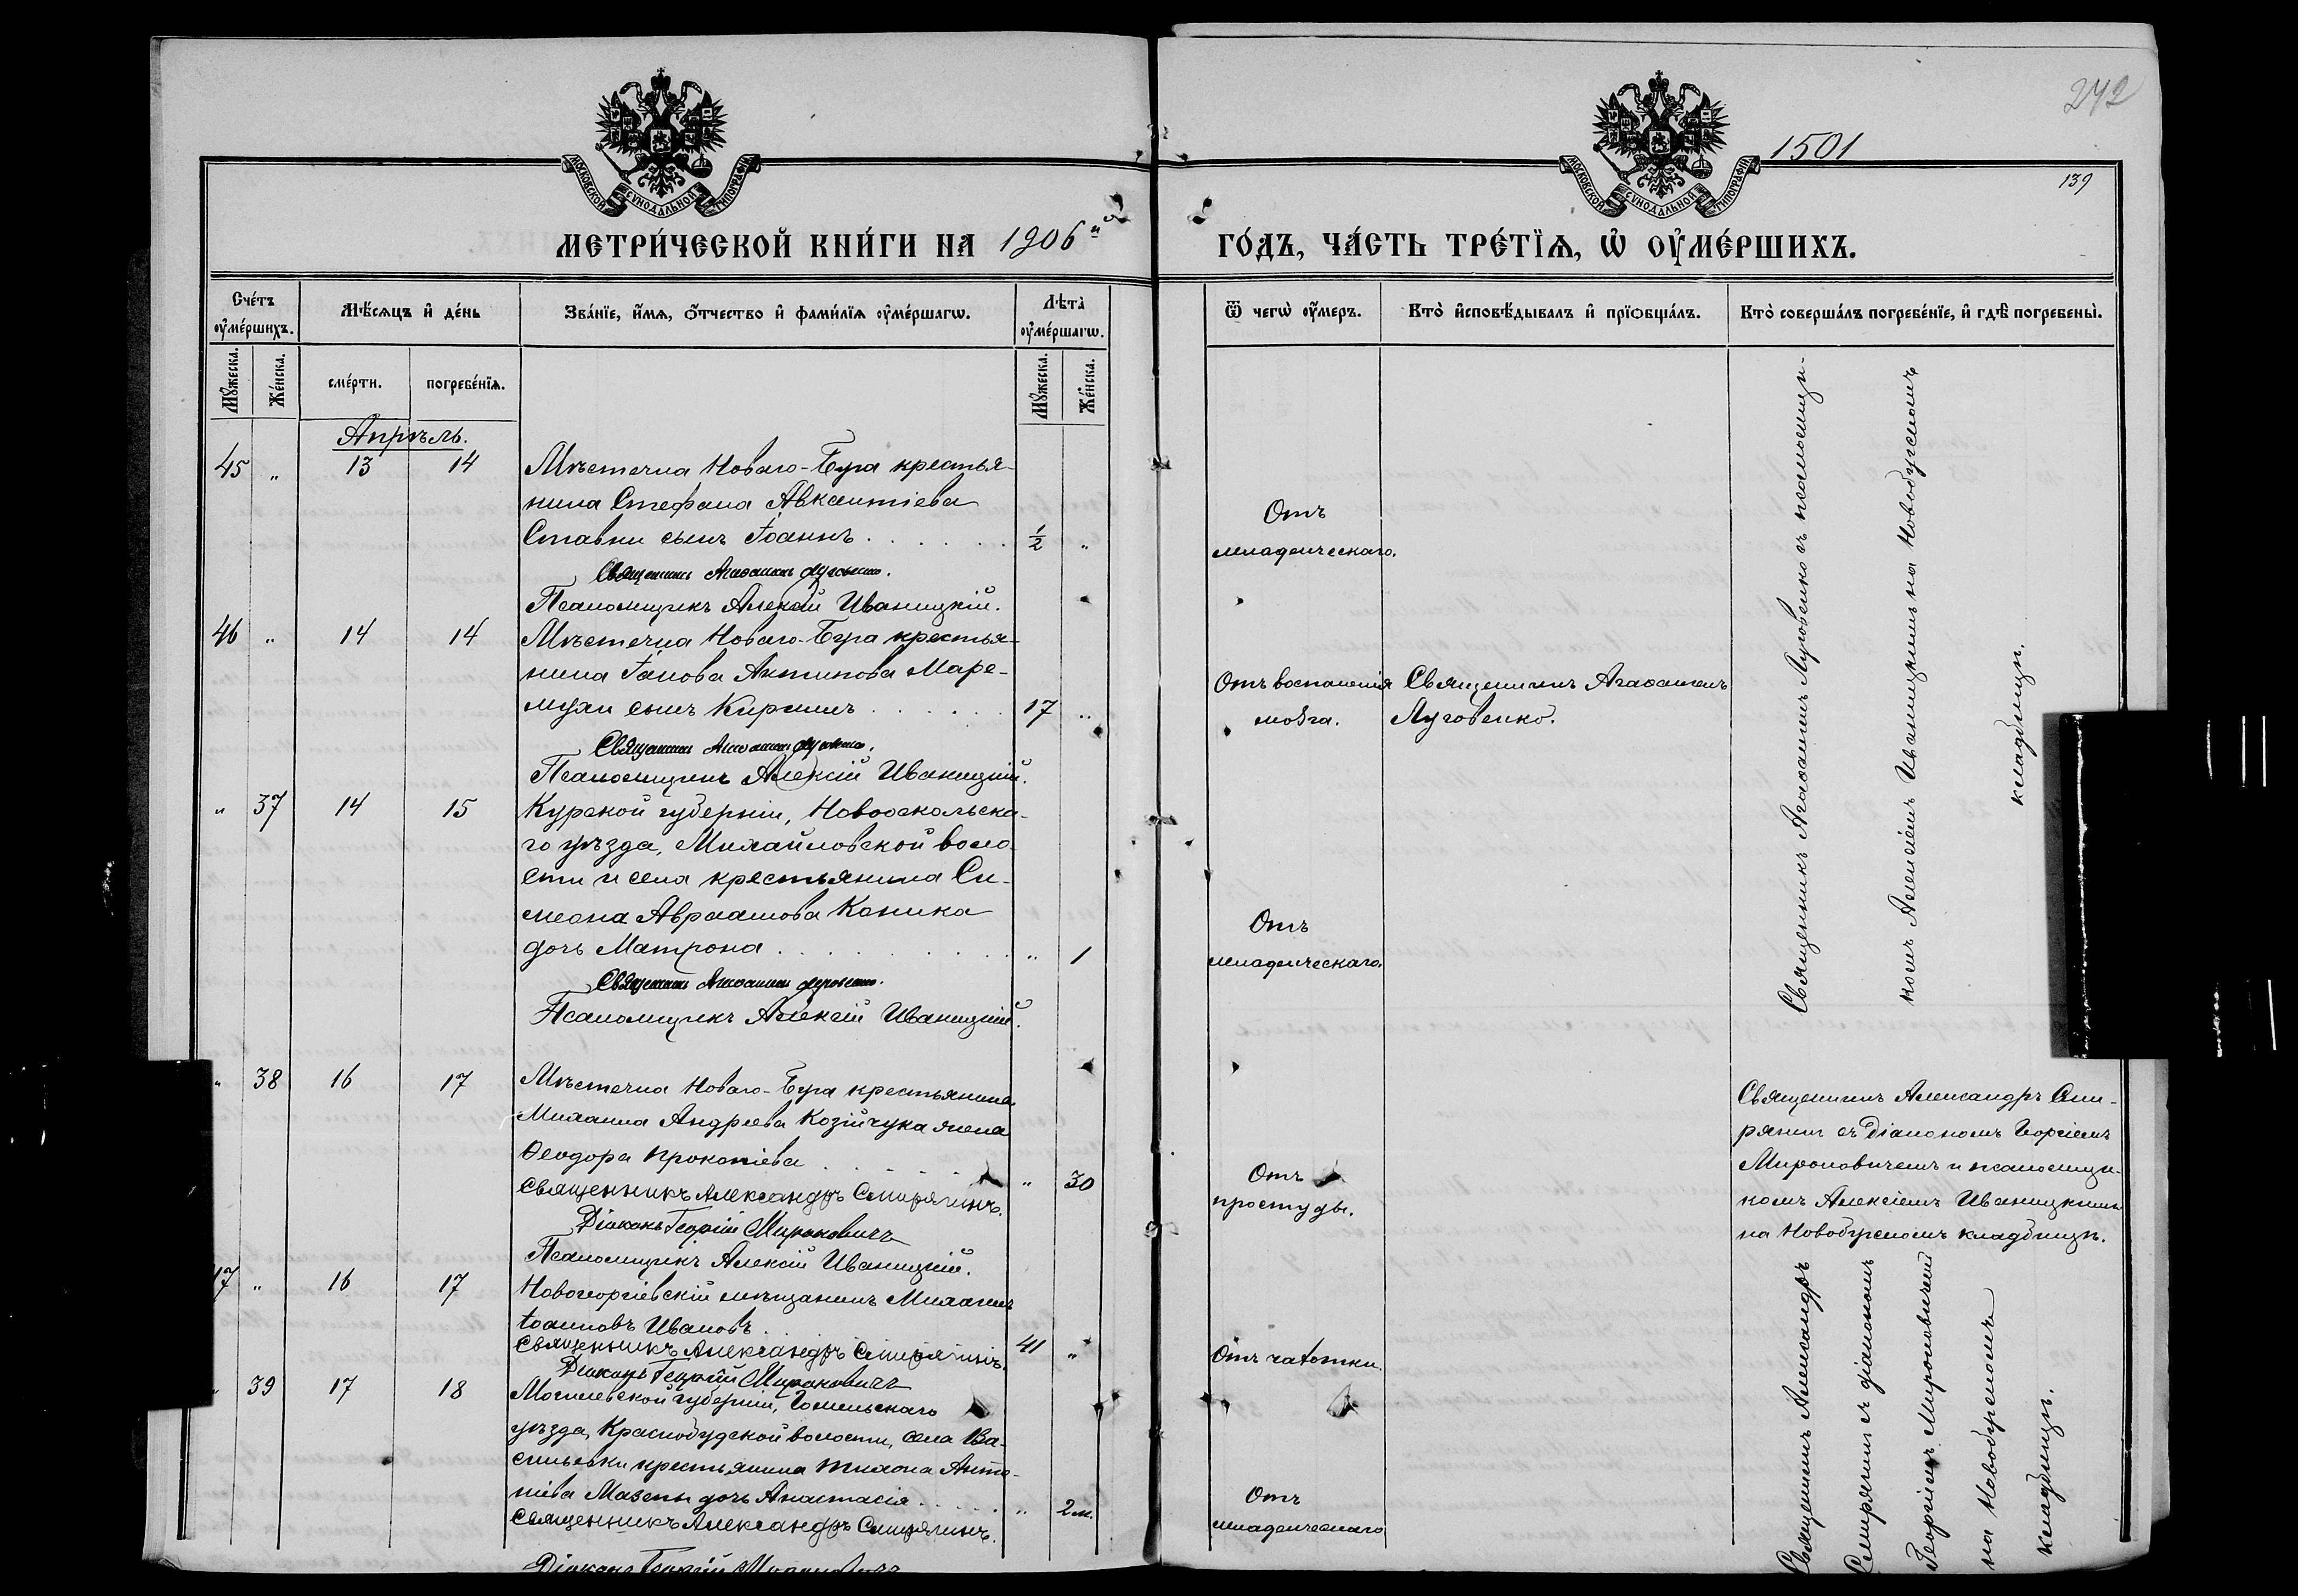 242
1501
139
МОСКОВСКОЙ СѴНОДАЛЬНОЙ ТИПОГРАФІИ
МОСКОВСКОЙ СѴНОДАЛЬНОЙ ТИПОГРАФІИ
МЕТРИ́ЧЕСКОЙ КНИ́ГИ НА 1906й
ГО́ДЪ, ЧА́СТЬ ТРЕ́ТЇѦ, Ѡ҆ ОУ҆МЕ́РШИХЪ.
Сче́тъ оу҆ме́ршихъ.
Мѣ́сяцъ и҆ де́нь
Зва́нїе, и҆́мѧ, ѻ҆́тчество и҆ фами́лїѧ оу҆ме́ршагѡ.
Лѣ́та оу҆ме́ршагѡ.
Ѿ чегѡ̀ оу҆́меръ.
Кто̀ и҆сповѣ́дывалъ и҆ прїѡбща́лъ.
Кто̀ соверша́лъ погребе́нїе, и҆ гдѣ̀ погребены̀.
Мꙋ́жеска.
Же́нска.
сме́рти.
погребе́нїѧ.
Мꙋ́жеска.
Же́нска.
Апрѣль.
45 " 13 14 Мѣстечка Новаго-Буга крестья-
нина Стефана Авксентіева
Ставки сынъ Іоаннъ . . . . . . 1/2 "
Отъ
младенческаго.
Священникъ Агаѳангелъ Луговенко.
Псаломщикъ Алексій Иваницкій.
46 " 14 14 Мѣстечка Новаго-Буга крестья-
нина Іакова Антипова Маре-
мухи сынъ Кириллъ . . . . . . 17 "
Отъ воспаленія
мозга.
Священникъ Агаѳангелъ
Луговенко.
Священникъ Агаѳангелъ Луговенко.
Псаломщикъ Алексій Иваницкій.
" 37 14 15 Курской губерніи, Новооскольска-
го уѣзда, Михайловской воло-
сти и села крестьянина Си-
меона Авраамова Коника
дочь Матрона . . . . . . . . . " 1
Отъ
младенческаго.
Священникъ Агаѳангелъ Луговенко.
Псаломщикъ Алексій Иваницкій.
Священникъ Агаѳангелъ Луговенко съ псаломщи-
комъ Алексіемъ Иваницкимъ на Новобугскомъ
кладбищѣ.
" 38 16 17 Мѣстечка Новаго-Буга крестьянина
Михаила Андреева Козійчука жена
Ѳеодора Прокопіева . . . . . . " 30
Отъ
простуды.
Священникъ Александръ Смирягинъ.
Діаконъ Георгій Мироновичъ
Псаломщикъ Алексій Иваницкій.
Священникъ Александръ Сми-
рягинъ съ діакономъ Георгіемъ
Мироновичемъ и псаломщи-
комъ Алексіемъ Иваницкимъ
на Новобугскомъ кладбищѣ.
47 " 16 17 Новогеоргіевскій мѣщанинъ Михаилъ
Іоанновъ Ивановъ . 41 "
Отъ чахотки.
Священникъ Александръ Смирягинъ.
Діаконъ Георгій Мироновичъ
" 39 17 18 Могилевской губерніи, Гомельскаго
уѣзда, Краснобудской волости, села Ва-
сильевки крестьянина Тихона Анто-
ніева Мазепы дочь Анастасія . . . . . " 2 м.
Отъ
младенческаго
Священникъ Александръ Смирягинъ.
Діаконъ Георгій Мироновичъ
Священникъ Александръ
Смирягинъ съ діакономъ
Георгіемъ Мироновичемъ
на Новобугскомъ
кладбищѣ.